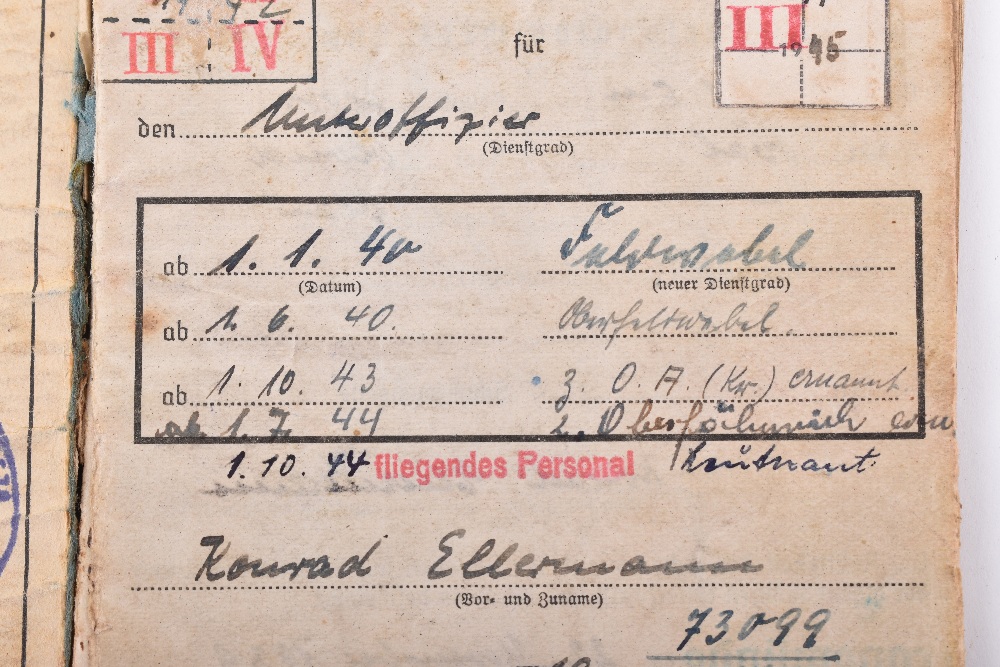 III IV
III
1945
für
den Unteroffizier
(Dienstgrad)
ab 1. 1. 40 Feldwebel
(Datum) (neuer Dienstgrad)
ab 1. 6. 40. Oberfeldwebel.
ab 1. 10. 43 z. O. A. (Kr.) ernannt
ab 1. 7. 44 z. Oberfähnrich ern.
1. 10. 44 fliegendes Personal Leutnant.
Konrad Ellermann
(Vor- und Zuname)
73099